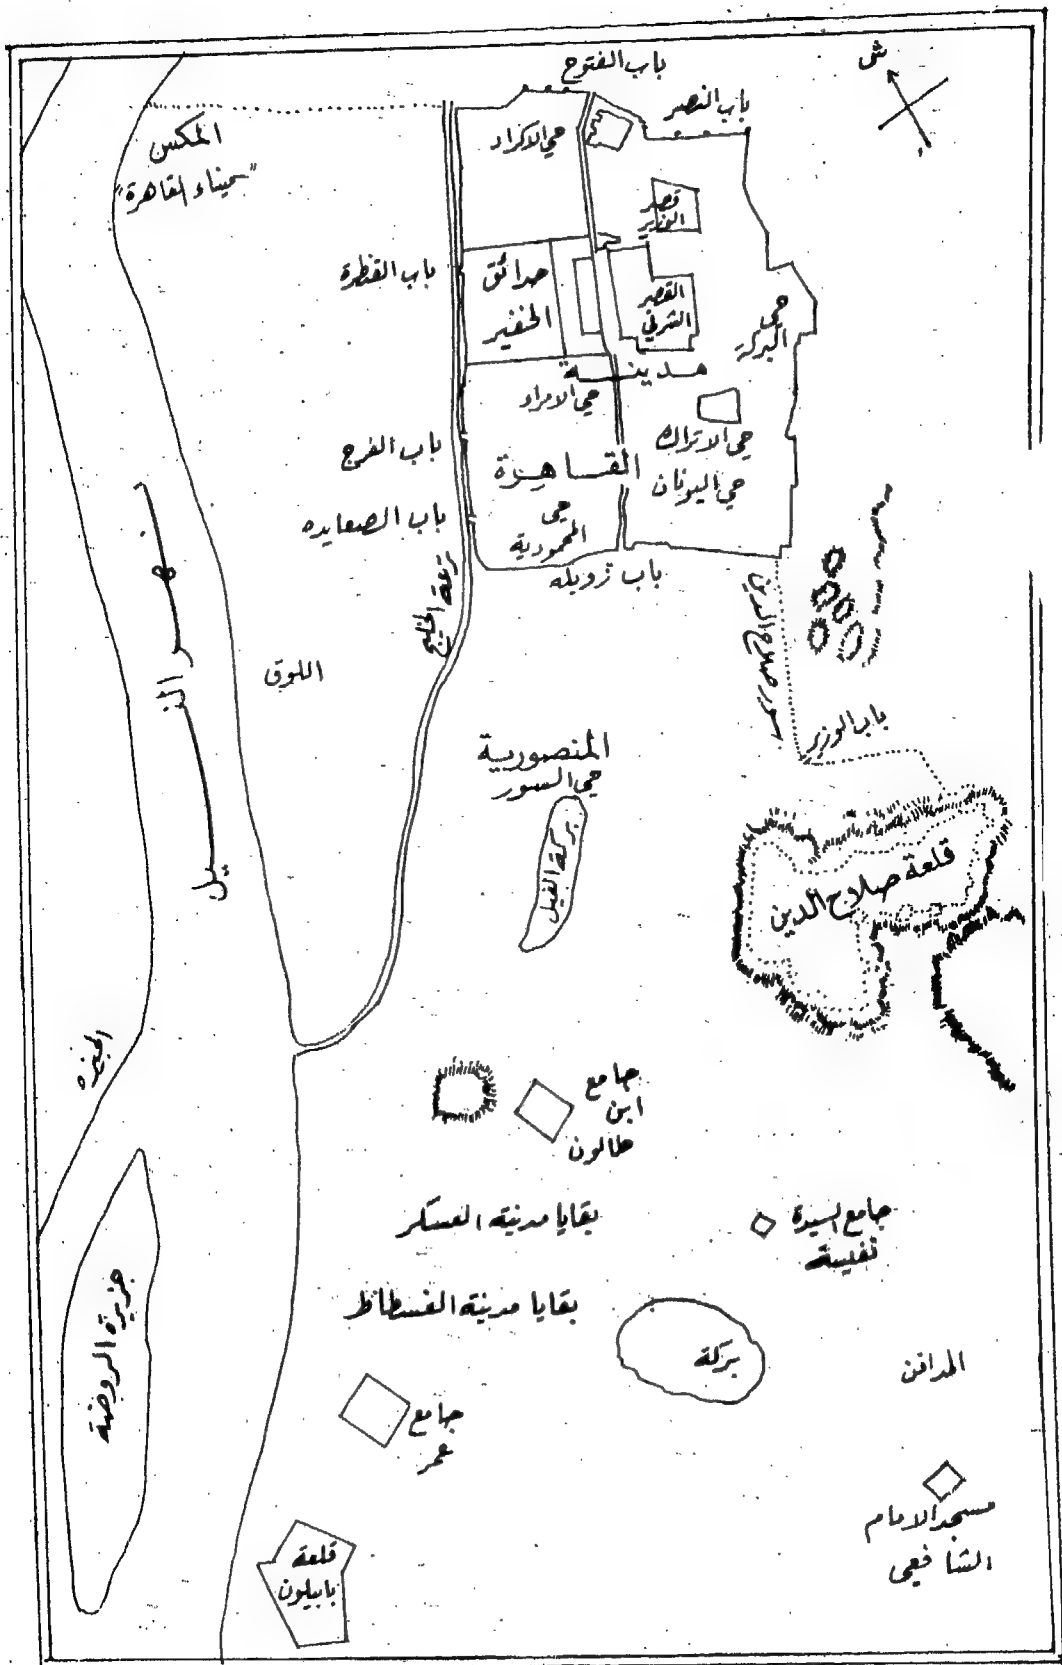 ش
باب الفتوح
باب النصر
المكس
"ميناء القاهرة"
حي الاكراد
قصر
الوزير
باب القنطرة
حدائق
الخفير
القصر
الشرقي
حي
مدينــــة
حي الامراء
حي الاتراك
باب الفرج
القـــاهــرة
حي اليونان
باب الصعايده
حي
المحمودية
باب زويله
ترعة الخليج
سور صلاح الدين
نهـــر النـــيل
اللوق
باب الوزير
المنصورية
حي السور
بركة الفيل
قلعة صلاح الدين
الجيزه
جامع
ابن
طالون
بقايا مدينة العسكر
جامع السيدة
نفيسة
بقايا مدينة الفسطاط
جزيرة الروضة
بركة
المدافن
جامع
عمر
مسجد الامام
الشافعي
قلعة
بابيلون